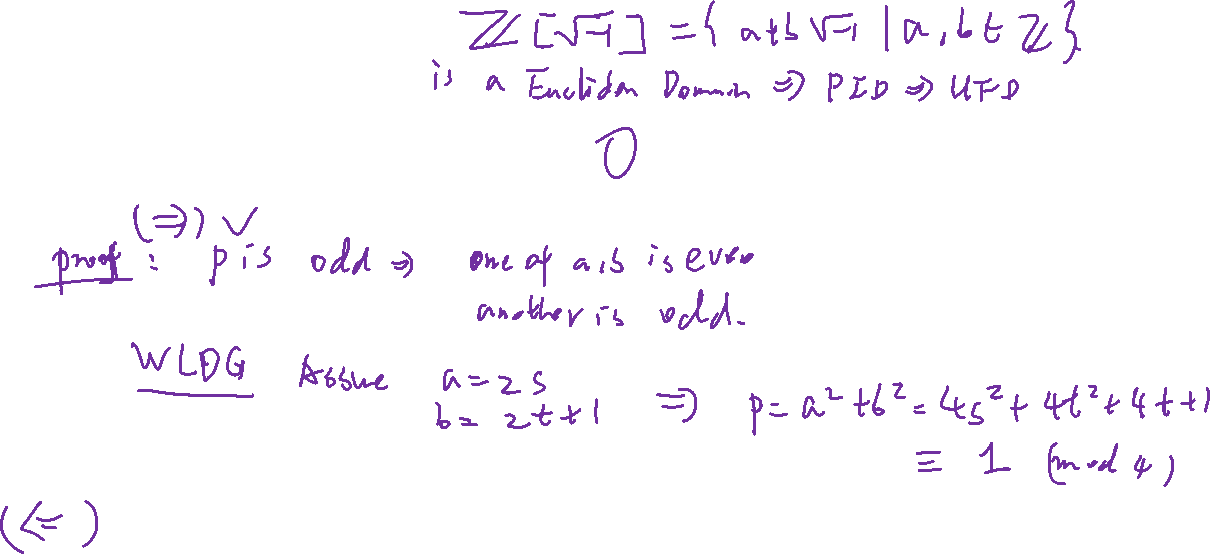 ℤ[√-1] = { a+b√-1 | a, b ∈ ℤ }
is a Euclidean Domain ⇒ PID ⇒ UFD
0
(⇒) ✓
proof : p is odd ⇒ one of a, b is even
another is odd.
WLOG Assue a = 2s
b = 2t+1 ⇒ p = a² + b² = 4s² + 4t² + 4t + 1
≡ 1 (mod 4)
(⇐)